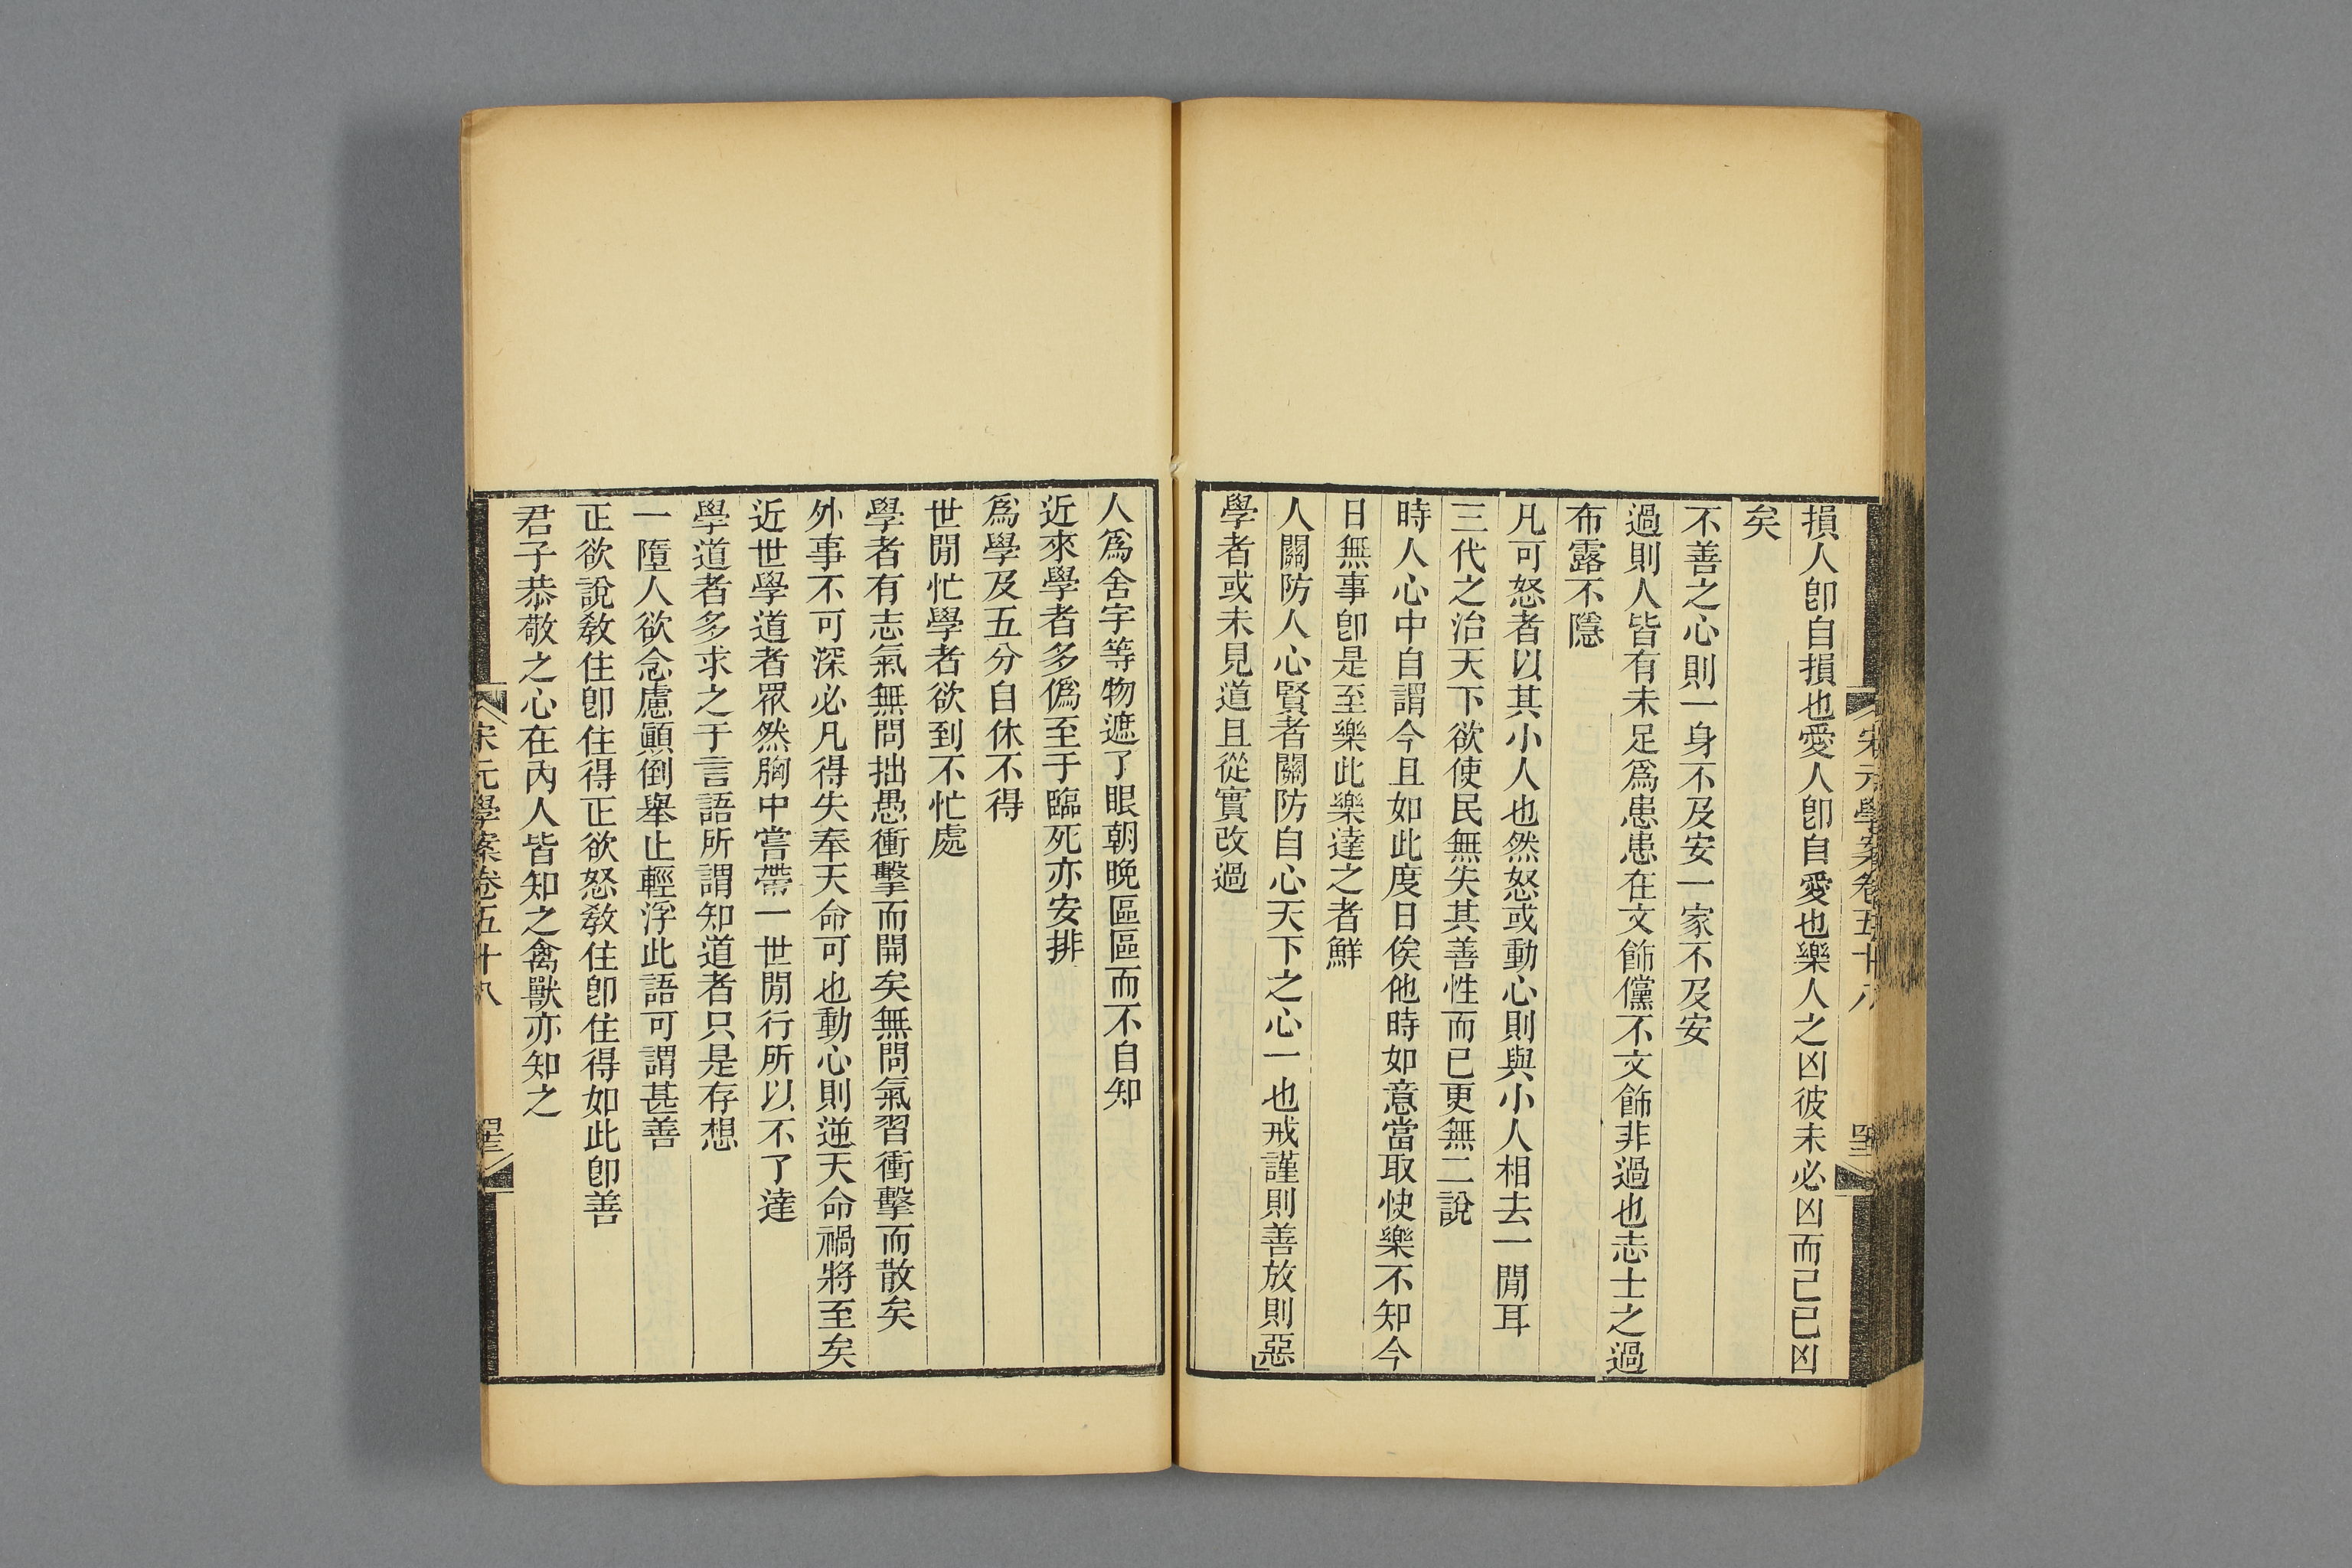 宋元學案卷五十八
損人卽自損也愛人卽自愛也樂人之凶彼未必凶而己已凶
矣
不善之心則一身不及安一家不及安
過則人皆有未足爲患患在文飾儻不文飾非過也志士之過
布露不隱
凡可怒者以其小人也然怒或動心則與小人相去一閒耳
三代之治天下欲使民無失其善性而已更無二說
時人心中自謂今且如此度日俟他時如意當取快樂不知今
日無事卽是至樂此樂達之者鮮
人關防人心賢者關防自心天下之心一也戒謹則善放則惡
學者或未見道且從實改過
人爲舍宇等物遮了眼朝晚區區而不自知
近來學者多僞至于臨死亦安排
爲學及五分自休不得
世閒忙學者欲到不忙處
學者有志氣無問拙愚衝擊而開矣無問氣習衝擊而散矣
外事不可深必凡得失奉天命可也動心則逆天命禍將至矣
近世學道者眾然胸中嘗帶一世閒行所以不了達
學道者多求之于言語所謂知道者只是存想
一墮人欲念慮顚倒舉止輕浮此語可謂甚善
正欲說敎住卽住得正欲怒敎住卽住得如此卽善
君子恭敬之心在內人皆知之禽獸亦知之
宋元學案卷五十八